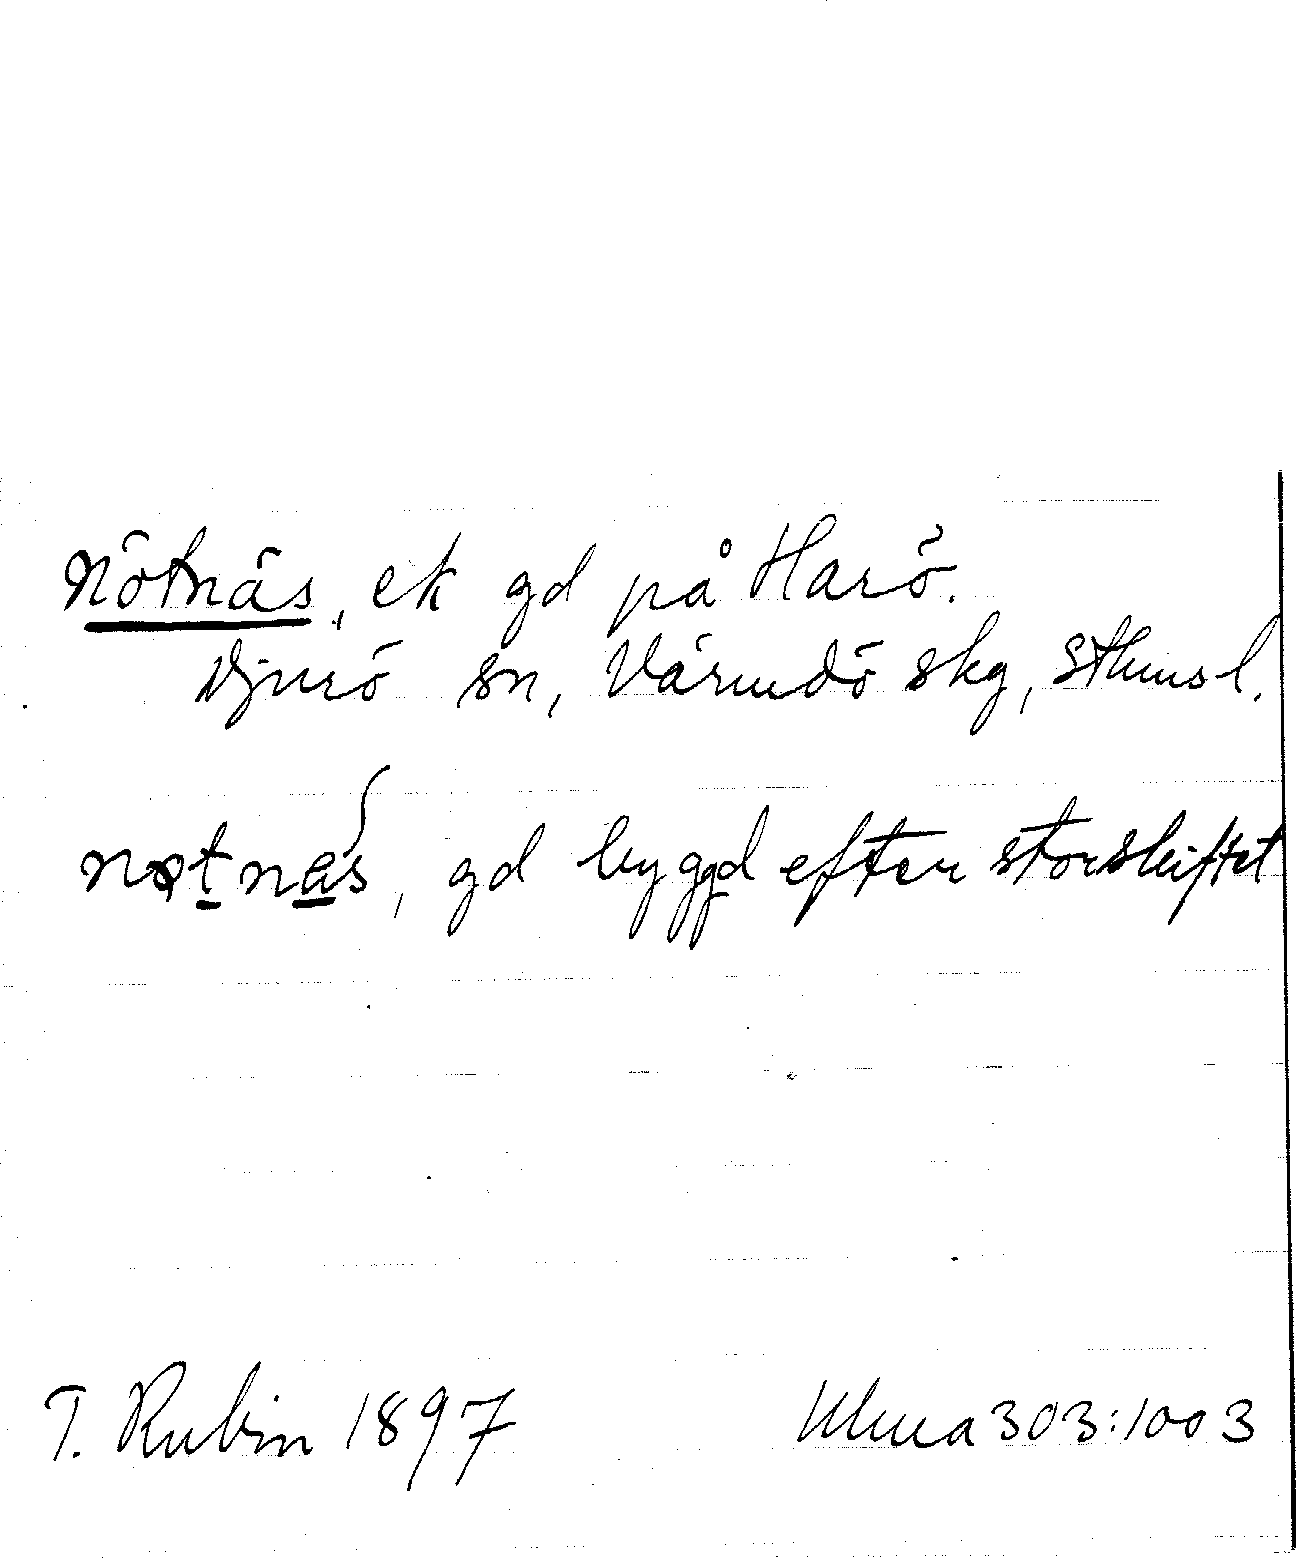 Nötnäs, ek gd på Harö.
Djurö sn, Värmdö skg, Sthms l.
nøtnas, gd byggd efter storskiftet
T. Rubin 1897 Ulma 303:1003